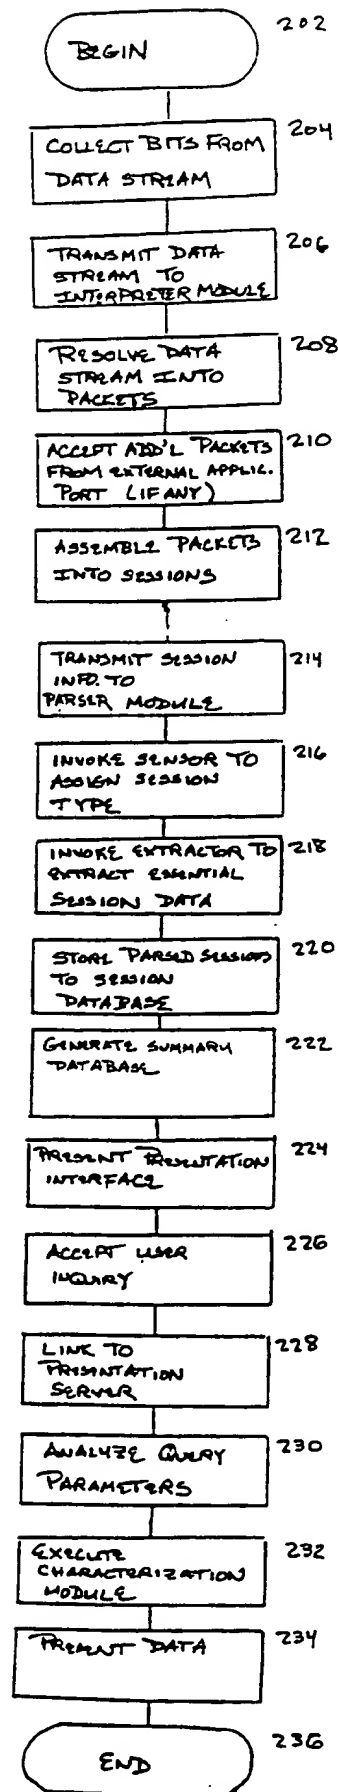 202
BEGIN
204
COLLECT BITS FROM
DATA STREAM
206
TRANSMIT DATA
STREAM TO
INTERPRETER MODULE
208
RESOLVE DATA
STREAM INTO
PACKETS
210
ACCEPT ADD'L PACKETS
FROM EXTERNAL APPLIC.
PORT (IF ANY)
212
ASSEMBLE PACKETS
INTO SESSIONS
214
TRANSMIT SESSION
INFO. TO
PARSER MODULE
216
INVOKE SENSOR TO
ASSIGN SESSION
TYPE
218
INVOKE EXTRACTOR TO
EXTRACT ESSENTIAL
SESSION DATA
220
STORE PARSED SESSIONS
TO SESSION
DATABASE
222
GENERATE SUMMARY
DATABASE
224
PRESENT PRESENTATION
INTERFACE
226
ACCEPT USER
INQUIRY
228
LINK TO
PRESENTATION
SERVER
230
ANALYZE QUERY
PARAMETERS
232
EXECUTE
CHARACTERIZATION
MODULE
234
PRESENT DATA
236
END